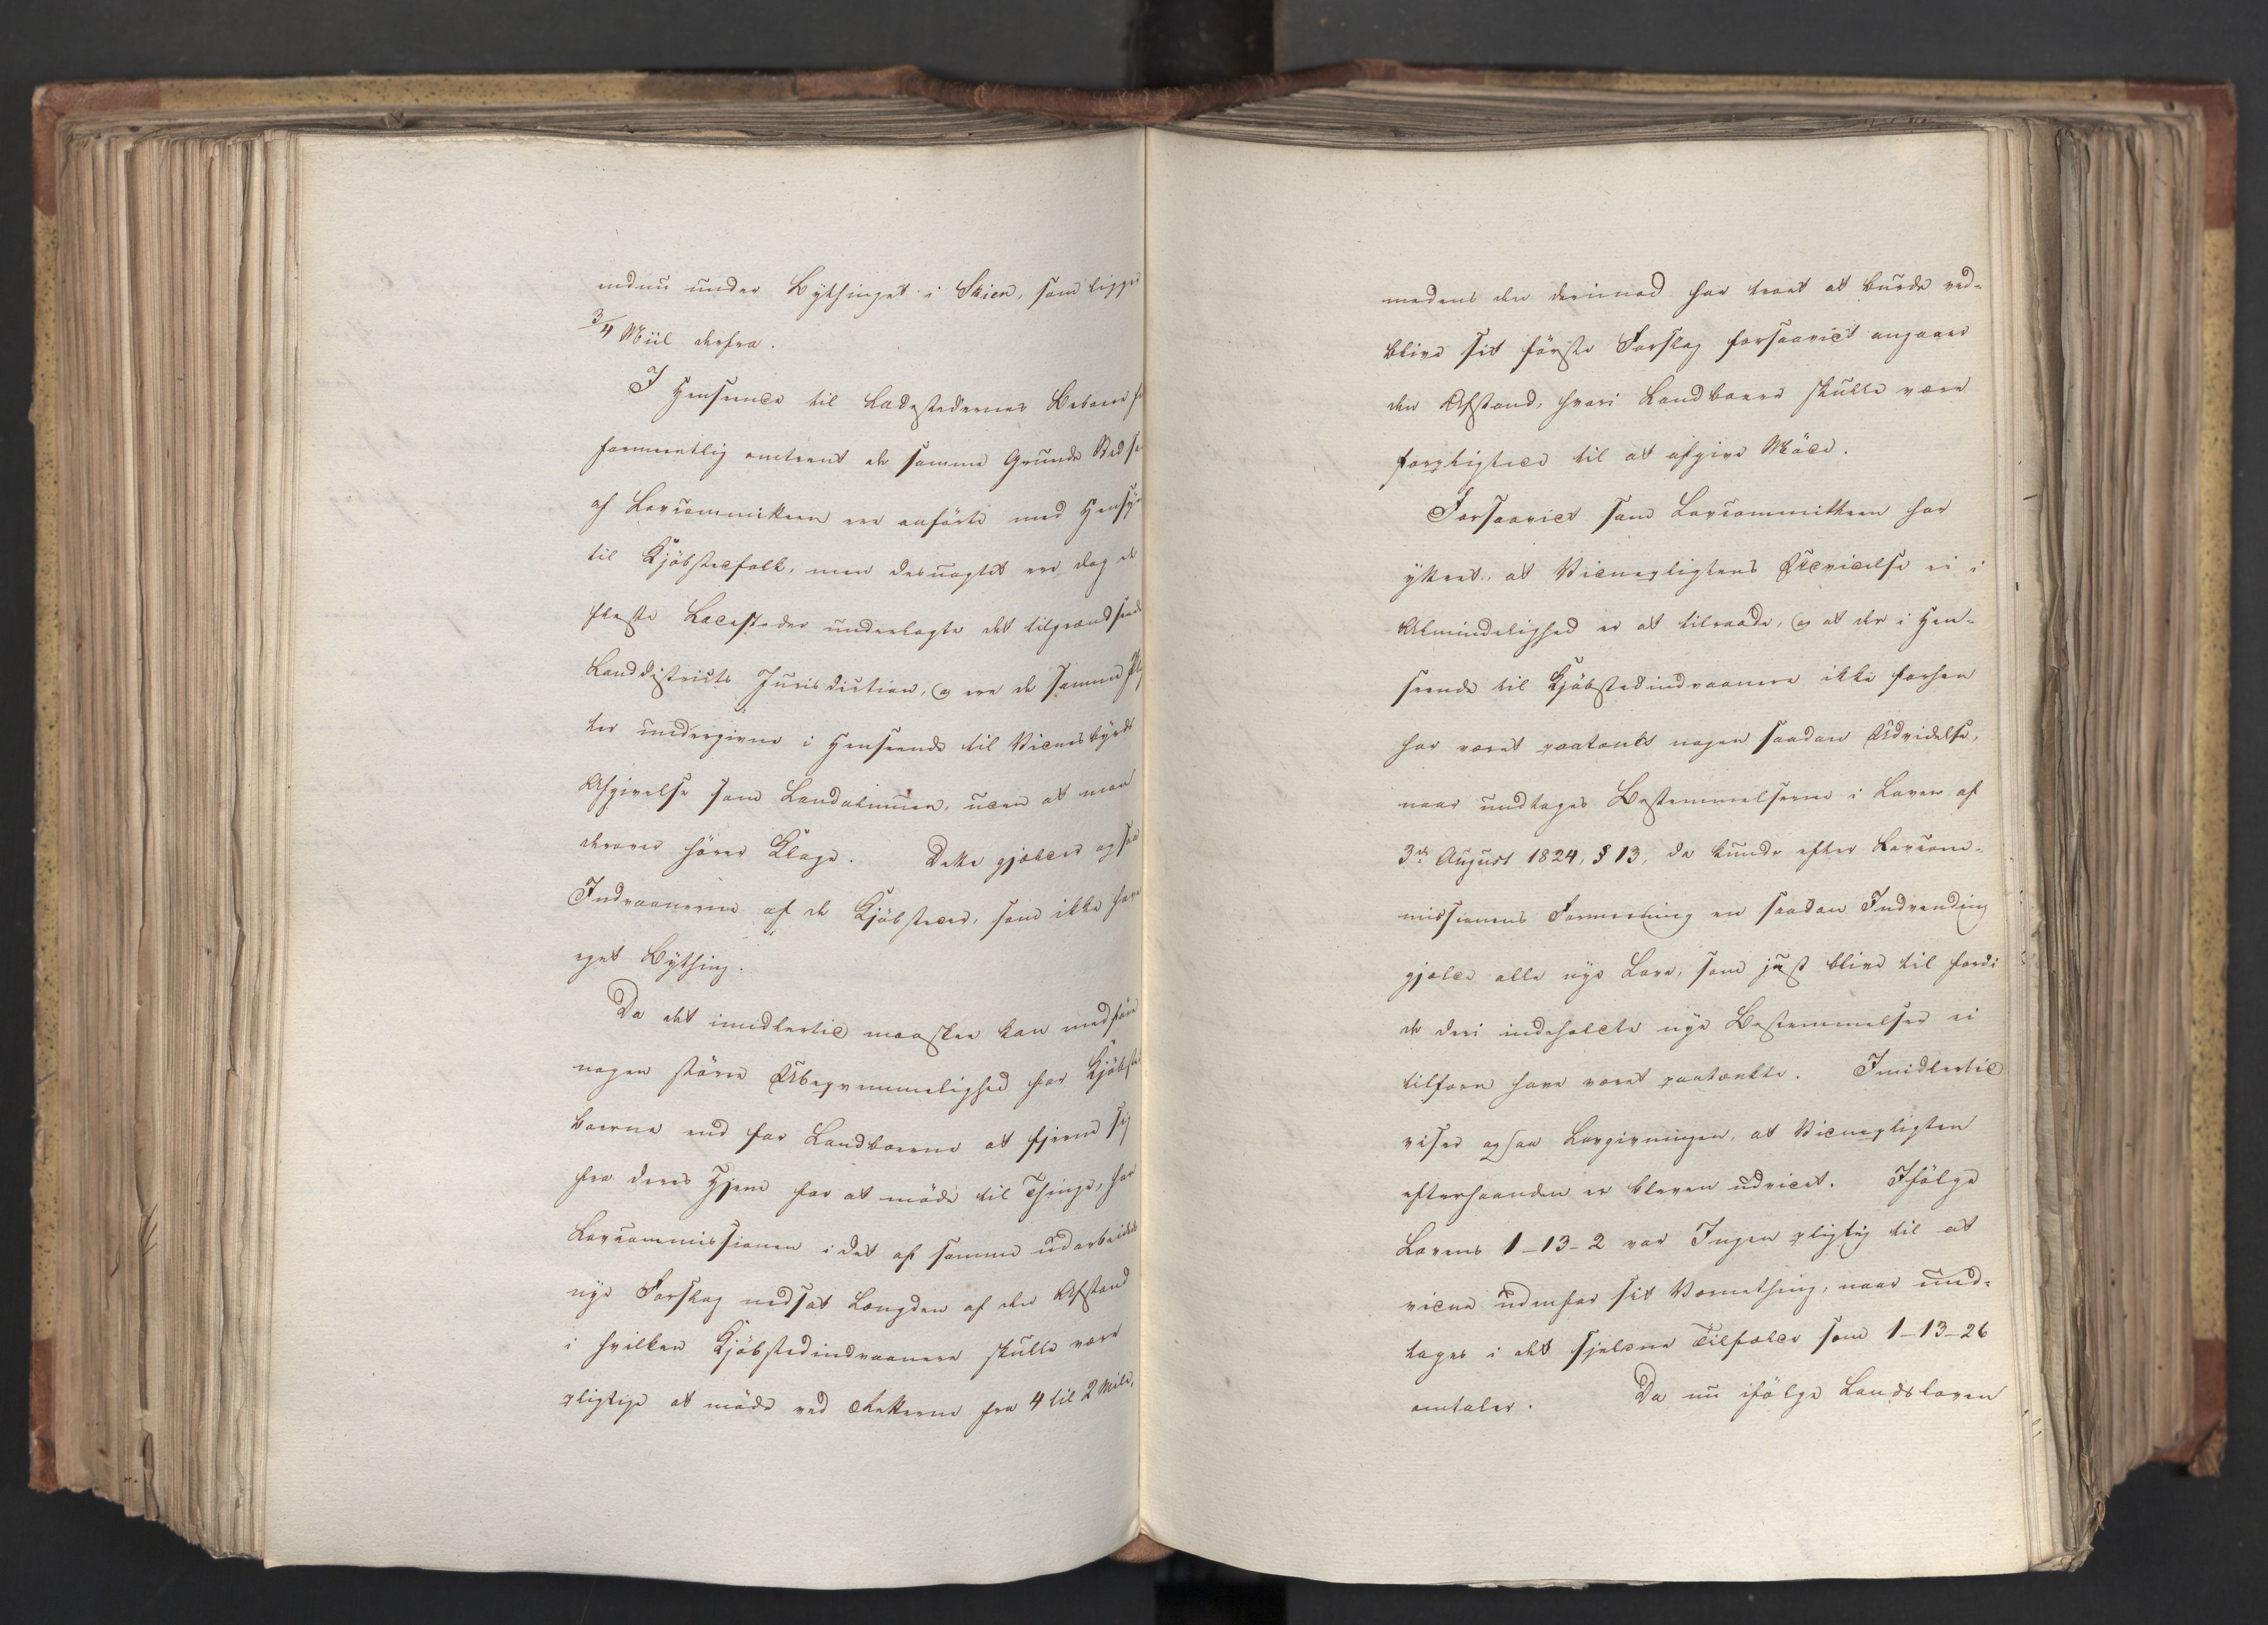 endnu under Bythinget i Skien, som ligger
3/4 Miil derfra.
I Henseende til Ladestedernes Beboere
formeentlig omtrent de samme Grunde Sted
af Lovcommitteen ere anførte med Hensyn
til Kjøbstedfolk, men desuagtet ere dog de
fleste Ladesteder underlagte det tilgrændsende
Landdistricts Jurisdiction, og ere de samme
ter undergivne i Henseende til Vidnesbyrds
Afgivelse som Landalmuen, uden at man
derover hører Klage. Dette gjælder ogsaa
Indvaanerne af de Kjøbstæder, som ikke have
eget Bything.
Da det imidlertid maaskee kan medføre
nogen større Ubeqvemmelighed for Kjøbsted
boerne end for Landboerne at fjerne sig
fra deres Hjem for at møde til Thinge, har
Lovcommissionen i det af samme udarbeidede
nye Forslag nedsat Længden af den Afstand
i hvilken Kjøbstedindvaanere skulle være
pligtige at møde ved Retterne fra 4 til 2 Mile,
medens den derimod har troet at burde ved-
blive sit første Forslag forsaavidt angaaer
den Afstand, hvori Landboere skulle være
forpligtede til at afgive Møde.
Forsaavidt som Lovcommitteen har
yttret, at Vidnepligtens Udvidelse ei i
Almindelighed er at tilraade, og at der i Hen-
seende til Kjøbstedindvaanere ikke forhen
har været paatænkt nogen saadan Udvidelse,
naar undtages Bestemmelserne i Loven af
3die August 1824, § 13, da kunde efter Lovcom-
missionens Formening en saadan Indvending
gjælde alle nye Love, som just blive til fordi
de deri indeholdte nye Bestemmelser ei
tilforn have været paatænkte. Imidlertid
viser ogsaa Lovgivningen, at Vidnepligten
efterhaanden er bleven udvidet. Ifølge
Lovens 1-13-2 var Ingen pligtig til at
vidne udenfor sit Værnething, naar und-
tages i det sjeldne Tilfælde som 1-13-26
omtaler. Da nu ifølge Landsloven